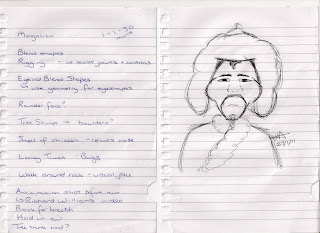 1-1-30
Blend shapes
Rigging - at least joints + controls
Eyelid Blend Shapes
use geometry for eyeshapes
Rounder face?
Tree Stump = boulders?
Smell of chicken - leads nose
Looney Tunes - Bugs
Walk around rock - visual joke
Anticipation shot before run
Richard Williams video
Break for breath
Hold in air
Tree trunk hood?